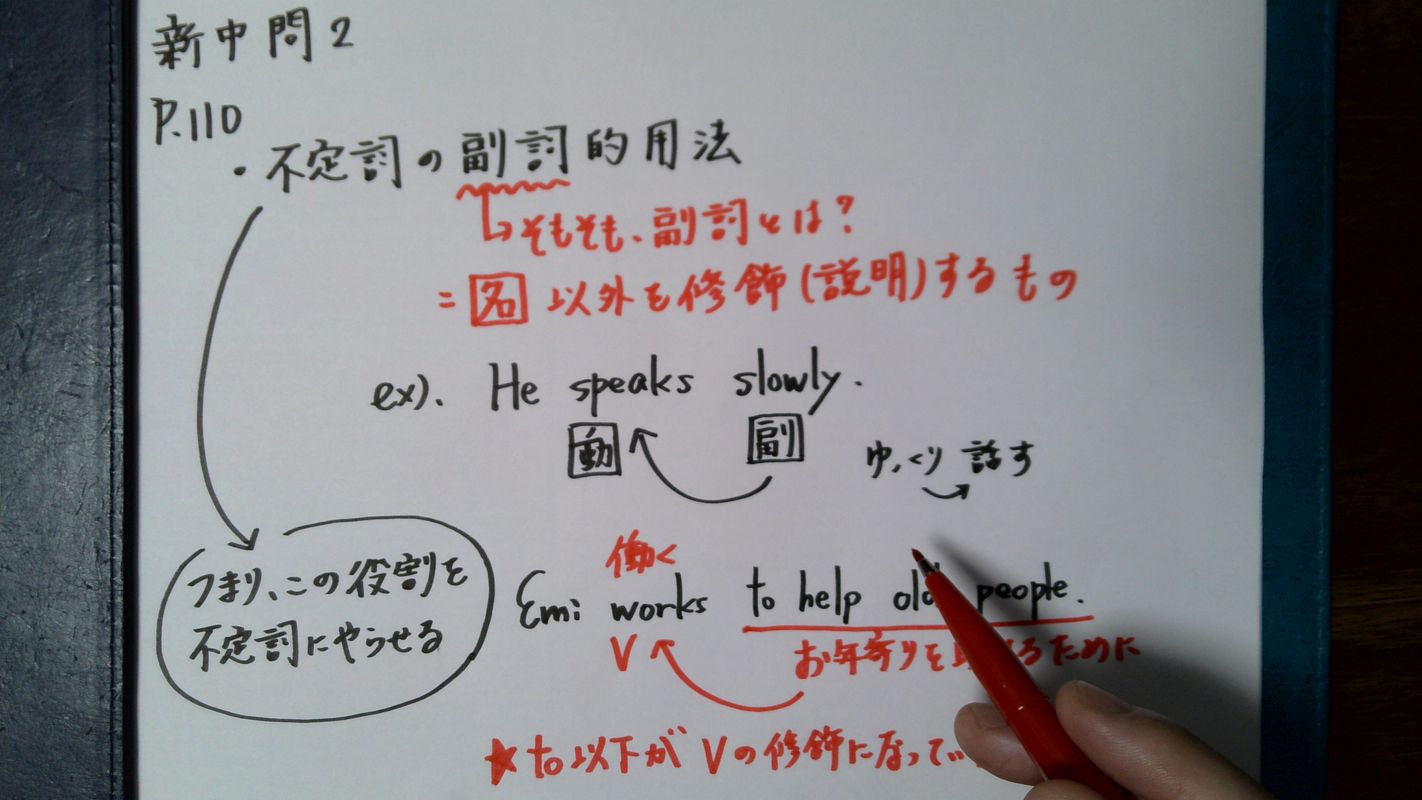 新中問2
P.110
・不定詞の副詞的用法
↳そもそも、副詞とは?
= 名 以外を修飾(説明)するもの
ex). He speaks slowly.
動 副
ゆっくり 話す
つまり、この役割を
不定詞にやらせる
働く
Emi works to help old people.
V お年寄りを るために
★to以下がVの修飾になって